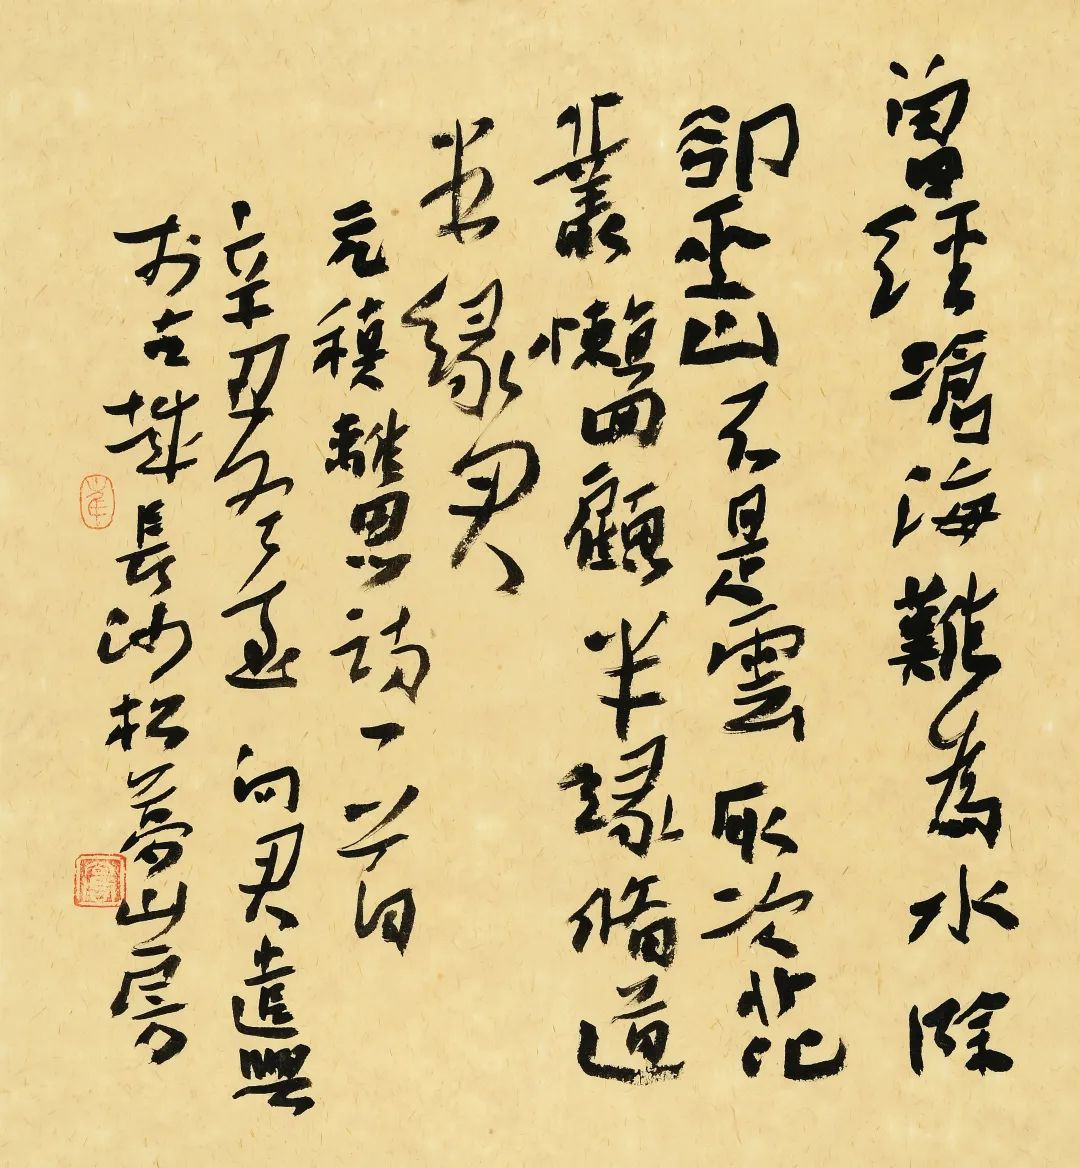 曾經滄海難為水除
卻巫山不是雲取次花
叢懶回顧半緣脩道
半緣君
元稹離思詩一首
辛丑冬至向君遣興
於古城長沙松夢山房